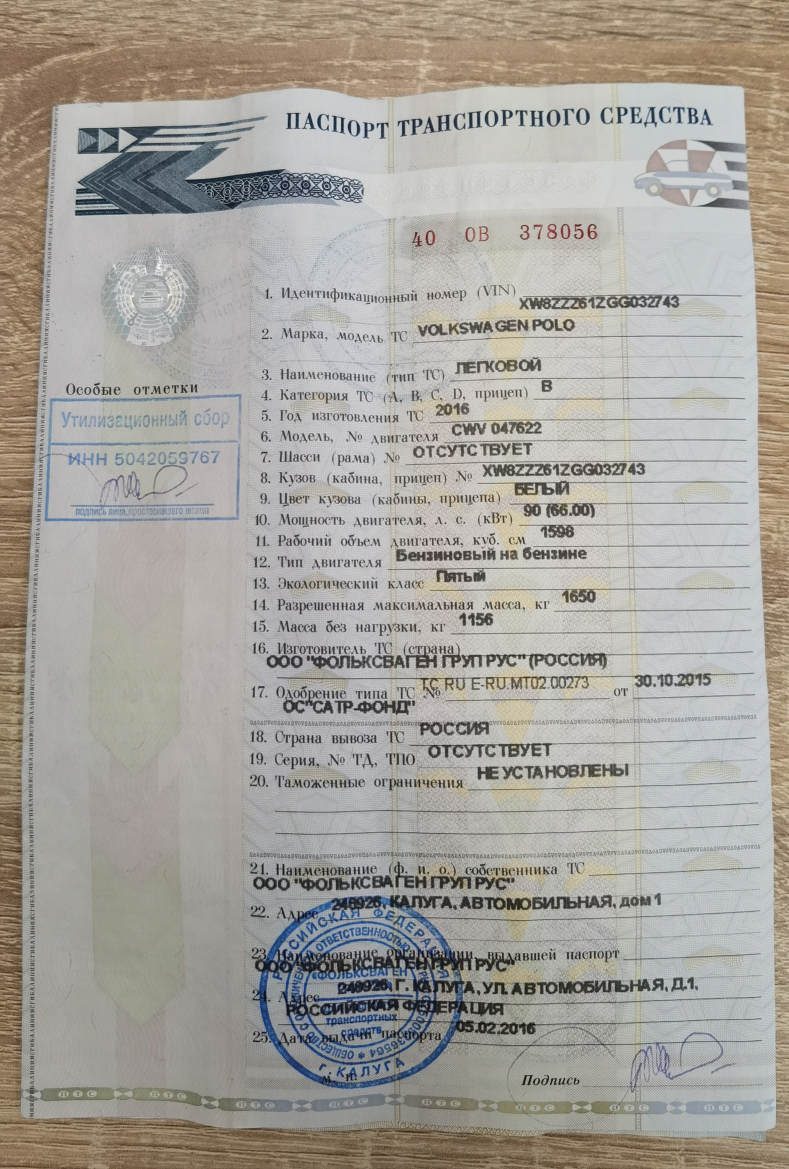 ПАСПОРТ ТРАНСПОРТНОГО СРЕДСТВА
40 ОВ 378056
1. Идентификационный номер (VIN) XW8ZZZ61ZGG032743
2. Марка, модель ТС VOLKSWAGEN POLO
3. Наименование (тип ТС) ЛЕГКОВОЙ
4. Категория ТС (А, В, С, D, прицеп) В
5. Год изготовления ТС 2016
6. Модель, № двигателя CWV 047622
7. Шасси (рама) № ОТСУТСТВУЕТ
8. Кузов (кабина, прицеп) № XW8ZZZ61ZGG032743
9. Цвет кузова (кабины, прицепа) БЕЛЫЙ
10. Мощность двигателя, л. с. (кВт) 90 (66.00)
11. Рабочий объем двигателя, куб. см 1598
12. Тип двигателя Бензиновый на бензине
13. Экологический класс Пятый
14. Разрешенная максимальная масса, кг 1650
15. Масса без нагрузки, кг 1156
16. Изготовитель ТС (страна)
ООО "ФОЛЬКСВАГЕН ГРУП РУС" (РОССИЯ)
17. Одобрение типа ТС № ТС RU E-RU.MT02.00273 от 30.10.2015
ОС"САТР-ФОНД"
18. Страна вывоза ТС РОССИЯ
19. Серия, № ТД, ТПО ОТСУТСТВУЕТ
20. Таможенные ограничения НЕ УСТАНОВЛЕНЫ
21. Наименование (ф. и. о.) собственника ТС
ООО "ФОЛЬКСВАГЕН ГРУП РУС"
22. Адрес 248926, КАЛУГА, АВТОМОБИЛЬНАЯ, дом 1
23. Наименование организации, выдавшей паспорт
ООО "ФОЛЬКСВАГЕН ГРУП РУС"
24. Адрес 248926, Г. КАЛУГА, УЛ. АВТОМОБИЛЬНАЯ, Д.1,
РОССИЙСКАЯ ФЕДЕРАЦИЯ
25. Дата выдачи паспорта 05.02.2016
М. П.
Подпись
Особые отметки
Утилизационный сбор
ИНН 5042059767
подпись лица, проставившего штамп
РОССИЙСКАЯ ФЕДЕРАЦИЯ
«ФОЛЬКСВАГЕН
транспортных
средств
г. КАЛУГА